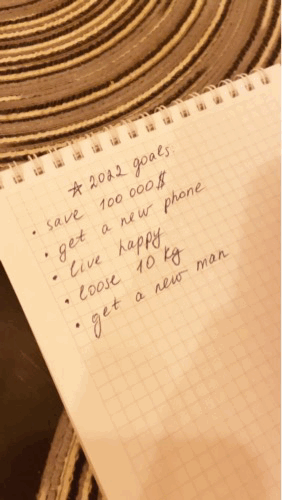 ☆ 2022 goals
• save 100 000$
• get a new phone
• live happy
• loose 10 kg
• get a new man